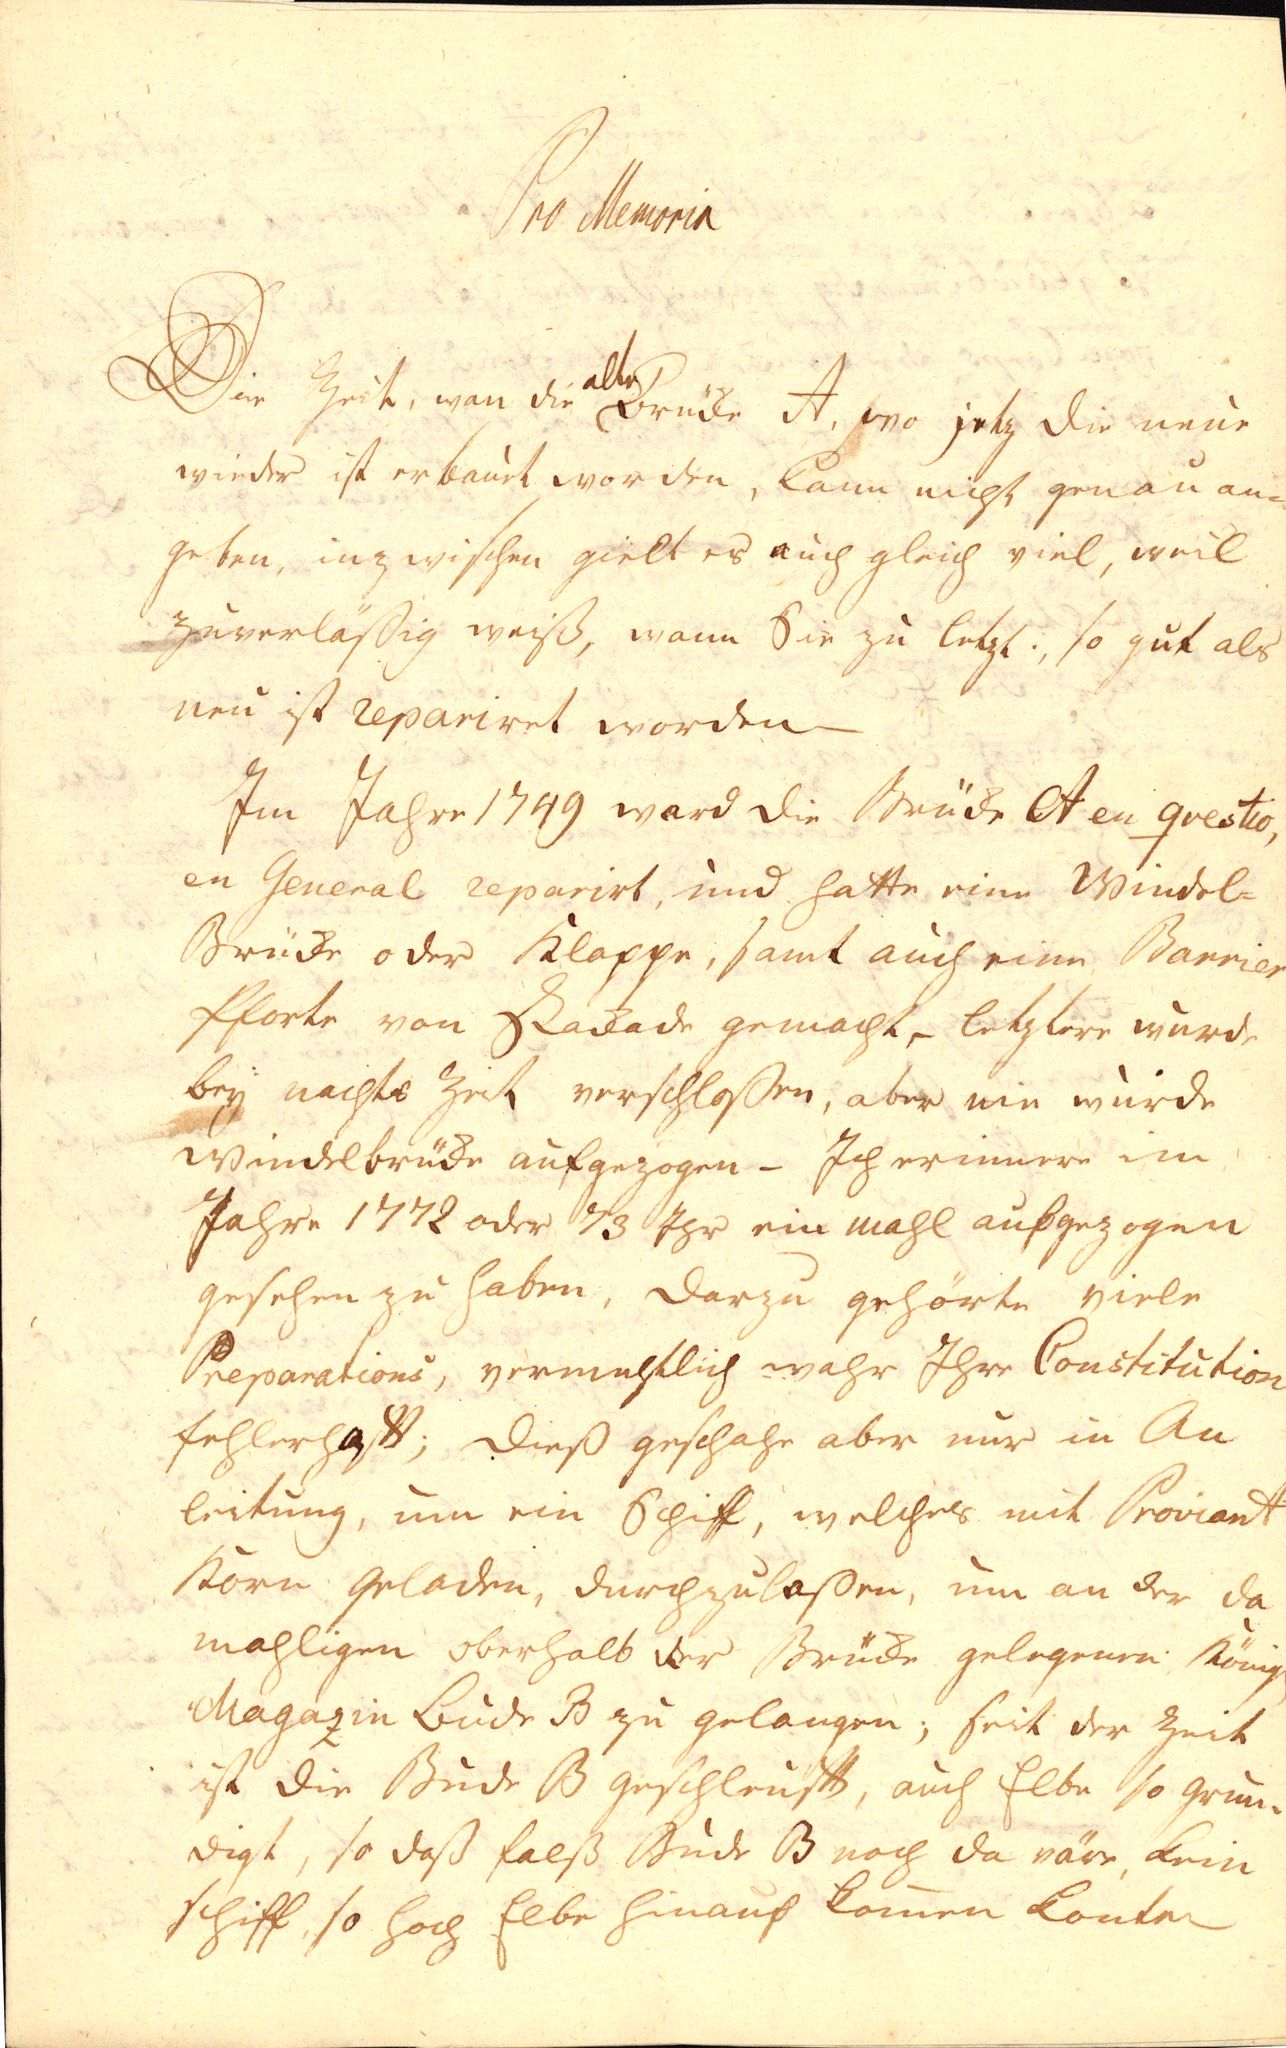 Pro Memoria
Die Zeit, wan die alte Brücke A, wo jetz die neue
wieder ist erbauet worden, kann nicht genau an=
geben, inzwischen gielt es auch gleich viel, weil
zuverläßig weiß, wann Sie zu letzt, so gut als
neu ist repariret worden
Im Jahre 1749 ward die Brücke A en questio,
en General reparirt, und hatte eine Windel=
Brücke oder Klappe, samt auch eine Barrier
Pforte von Stackade gemacht, letztere wurde
bey nachts Zeit verschloßen, aber nie würde
Windelbrücke aufgezogen – Ich erinnere im
Jahre 1772 oder 73 Ihr ein mahl aufgezogen
gesehen zu haben, darzu gehörte viele
Preparations, vermuhtlich wahr Ihre Constitution
fehlerhafft; dieß geschahe aber nur in An
leitung, um ein Schiff, welches mit Proviant
Korn geladen, durchzulaßen, um an der da
mahligen oberhalb der Brücke gelegenen Königl
Magazin Bude B zu gelangen; seit der Zeit
ist die Bude B geschleufft, auch Elbe so grun=
digt, so daß falß Bude B noch da wäre, kein
schiff, so hoch Elbe hinauf kom̄en konte